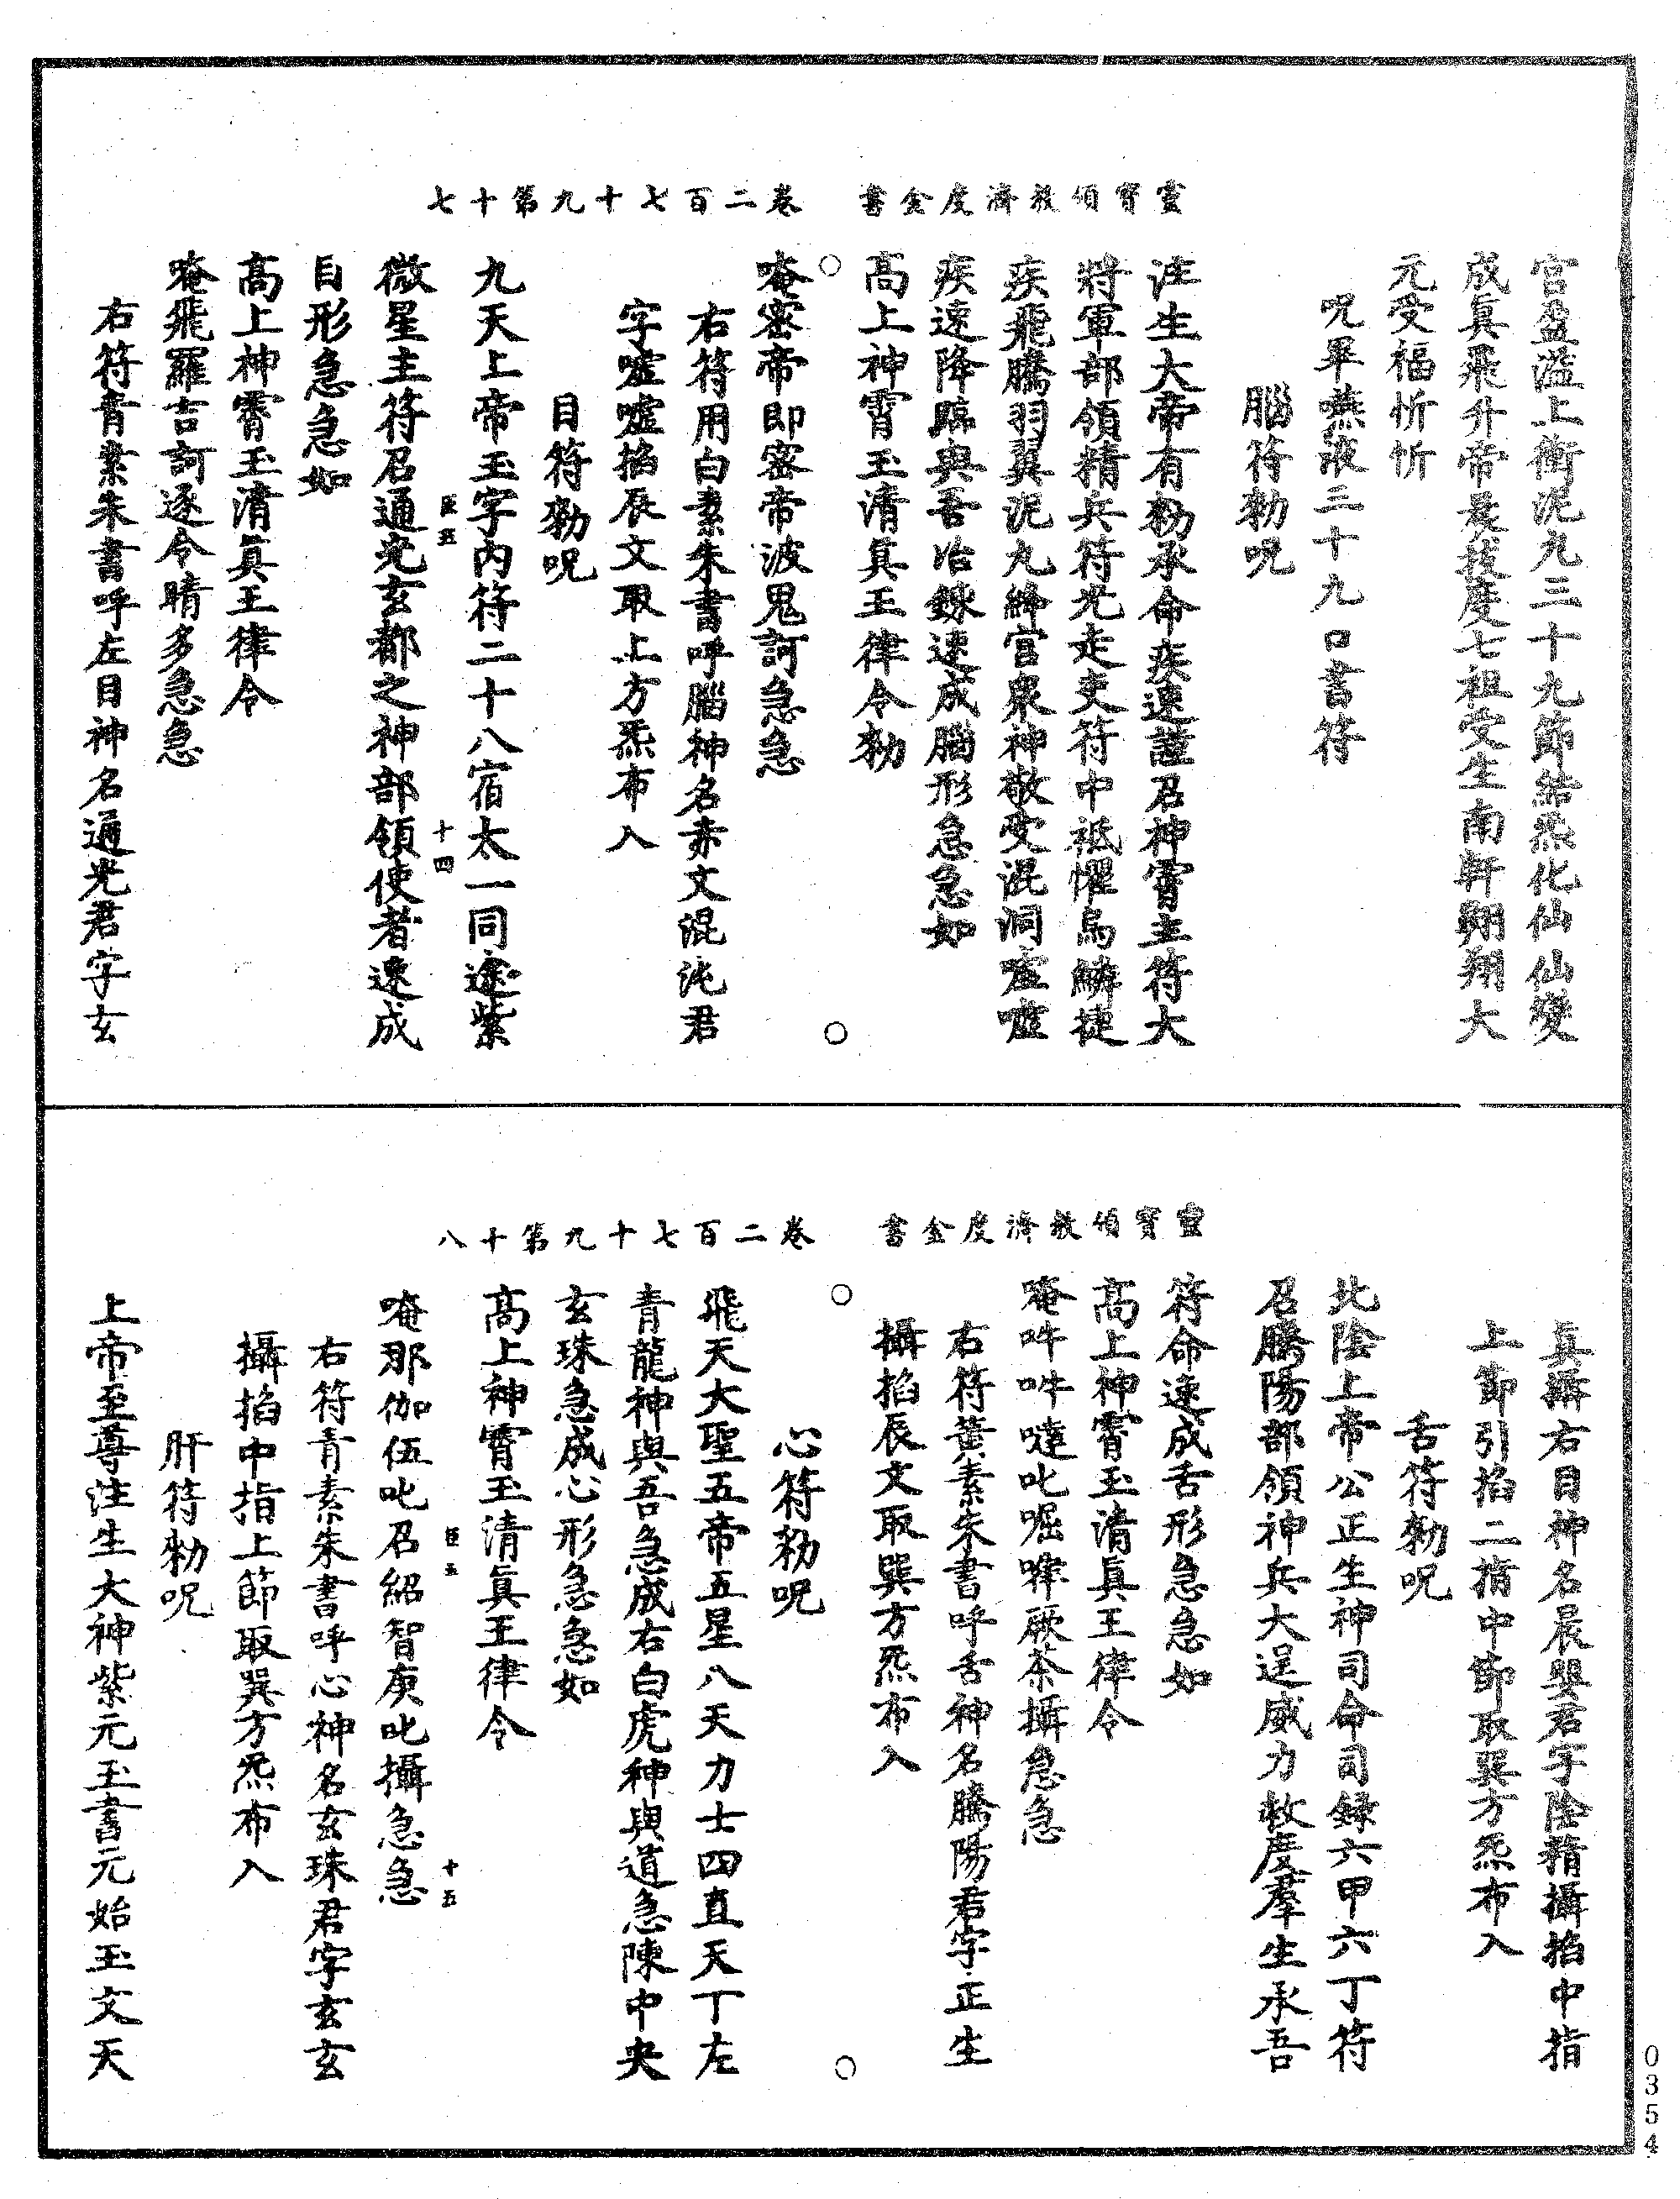 靈寶領教濟度金書　卷二百七十九第十七
宫盈溢上衝泥九三十九節結炁化仙仙變
成眞飛升帝晨拔度七祖受生南軒翺翔大
元受福忻忻
呪畢嚥液三十九口書符
腦符勑呪
注生大帝有勑承命疾速謹召神霄主符大
將軍部領精兵符光走吏符中祗懼烏鱗捷
疾飛騰羽翼泥九絳宫衆神敬受混洞虛噓
疾速降臨與吾冶鍊速成腦形急急如
高上神霄玉清眞王律令勑
唵密帝即密帝波鬼訶急急
右符用白素朱書呼腦神名赤文混沌君
字噓噓掐辰文取上方炁布入
目符勑呪
九天上帝玉字内符二十八宿太一同途紫
臣五　十四
微星主符召通光玄都之神部領使者速成
目形急急如
高上神霄玉清眞王律令
唵飛羅吉訶逐令睛多急急
右符青素朱書呼左目神名通光君字玄
靈寶領教濟度金書　卷二百七十九第十八
眞攝右目神名晨嬰君字陰精攝掐中指
上節引掐二指中節取巽方炁布入
舌符勑呪
北陰上帝公正生神司命司録六甲六丁符
召騰陽部領神兵大逞威力救度羣生承吾
符命速成舌形急急如
高上神霄玉清眞王律令
唵吽吽噠叱啒嘩厥茶攝急急
右符黄素朱書呼舌神名騰陽君字正生
攝掐辰文取巽方炁布入
心符勑呪
飛天大聖五帝五星八天力士四直天丁左
青龍神與吾急成右白虎神與道急陳中央
玄珠急成心形急急如
高上神霄玉清眞王律令
臣五　十五
唵那伽伍叱召紹智庚叱攝急急
右符青素朱書呼心神名玄珠君字玄玄
攝掐中指上節取巽方炁布入
肝符勑呪
上帝至尊注生大神紫元玉書元始玉文天
0354